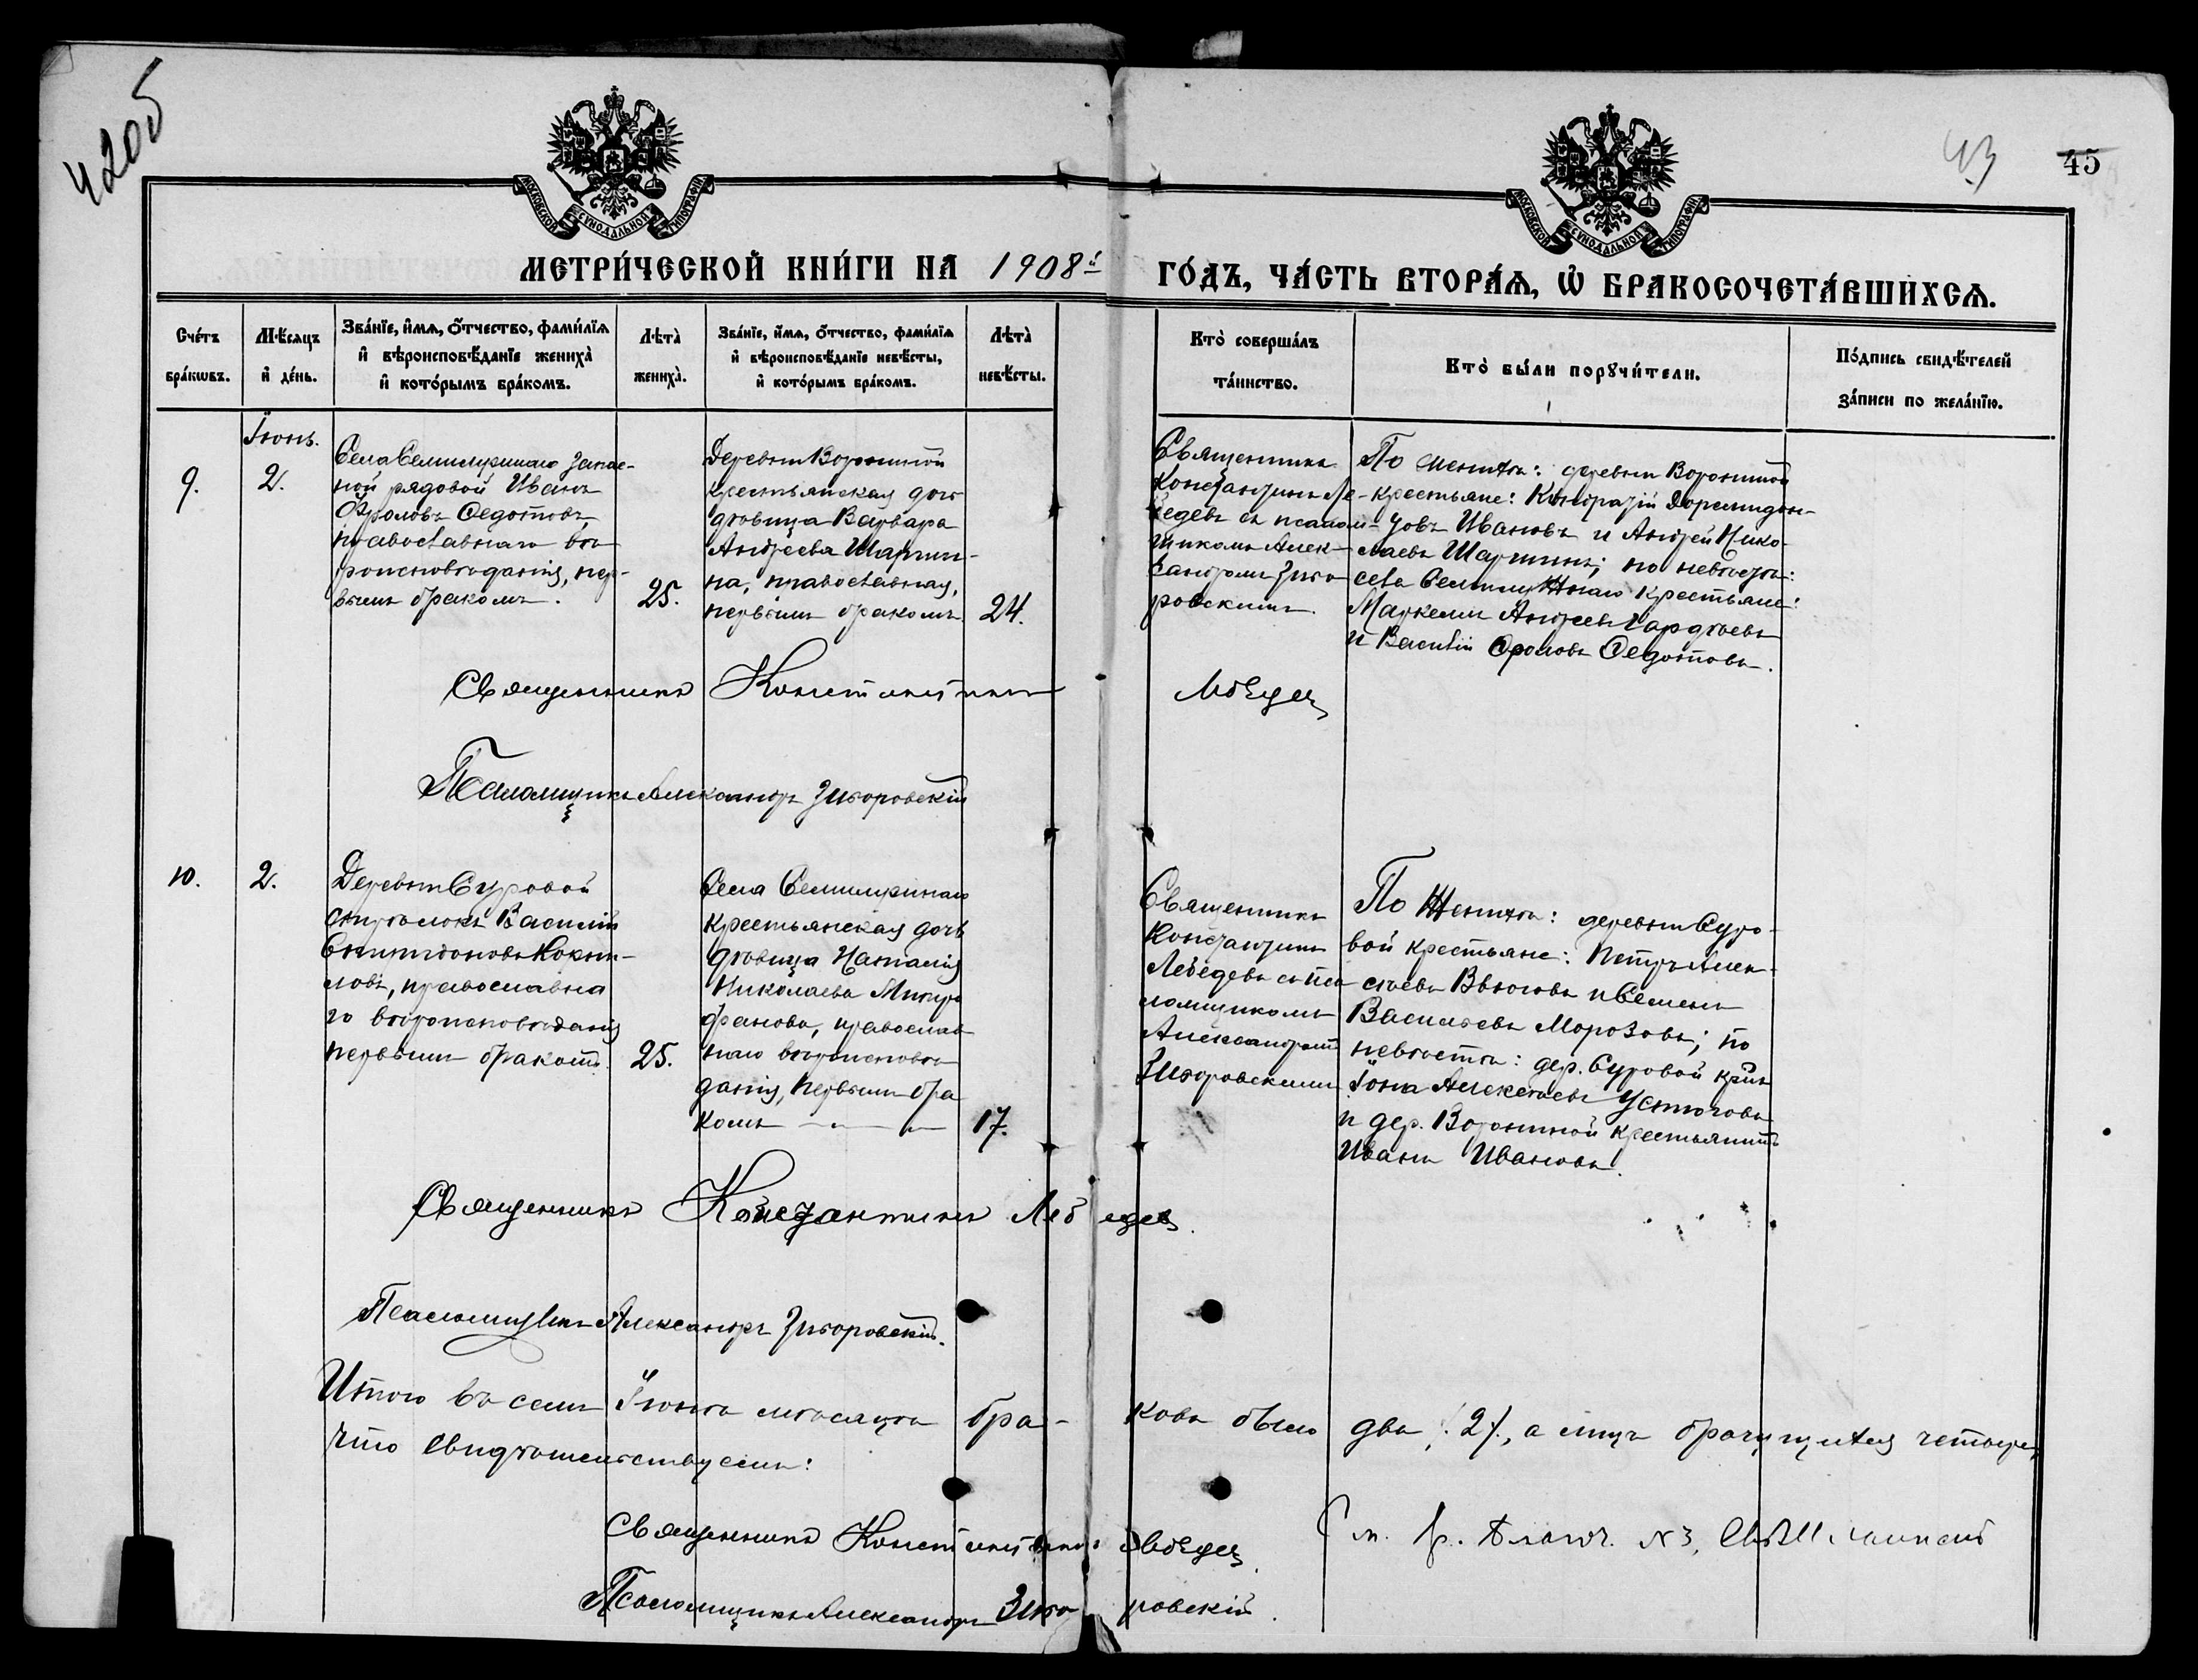 42об
43
45
МОСКОВСКОЙ СѴНОДАЛЬНОЙ ТИПОГРАФІИ
МОСКОВСКОЙ СѴНОДАЛЬНОЙ ТИПОГРАФІИ
МЕТРИ́ЧЕСКОЙ КНИ́ГИ НА 1908й ГО́ДЪ, ЧА́СТЬ ВТОРА́Ѧ, Ѡ҆ БРАКОСОЧЕТА́ВШИХСѦ.
Сче́тъ
бра́кѡвъ.
Мѣ́сѧцъ
и҆ де́нь.
Зва́нїе, и҆́мѧ, ѻ҆́тчество, фами́лїѧ
и҆ вѣроисповѣ́данїе жениха̀
и҆ кото́рымъ бра́комъ.
Лѣ́та̀
жениха̀.
Зва́нїе, и҆́мѧ, ѻ҆́тчество, фами́лїѧ
и҆ вѣроисповѣ́данїе невѣ́сты,
и҆ кото́рымъ бра́комъ.
Лѣ́та̀
невѣ́сты.
Кто̀ соверша́лъ
та́инство.
Кто̀ бы́ли порꙋчи́тели.
По́дпись свидѣ́телей
за́писи по жела́нїю.
Іюнь.
9.
2.
Села Семилужнаго запас-
ной рядовой Иванъ
Фроловъ Федотовъ,
православнаго вѣ-
роисповѣданія, пер-
вымъ бракомъ.
25.
Деревни Ворониной
крестьянская дочь
дѣвица Варвара
Андреева Шарпин-
на, православная,
первымъ бракомъ
24.
Священникъ
Константинъ Ле-
бедевъ съ псалом-
щикомъ Алек-
сандромъ Зиго-
ровскимъ.
По женихѣ: деревни Ворониной
крестьяне: Кондратій Дормидон-
товъ Ивановъ и Андрей Нико-
лаевъ Шарпинъ; по невѣстѣ:
села Семилужнаго крестьяне:
Маркеллъ Андреевъ Гордѣевъ
и Василій Фроловъ Федотовъ.
Священникъ Константинъ Лебедев
Псаломщикъ Александръ Зигоровскій
10.
2.
Деревни Суровой
Василій
Спиридоновъ
православна
го вѣроисповѣданія
первымъ бракомъ.
25.
Села Семилужнаго
крестьянская дочь
дѣвица Наталія
Николаева Митро
фанова, православ
наго вѣроисповѣ
данія, первымъ бра
комъ
17.
Священникъ
Константинъ
Лебедевъ съ пса
ломщикомъ
Александромъ
Зигоровскимъ
По женихѣ: деревни Суро-
вой крестьяне: Петръ Алек-
сѣевъ Вьюговъ и Семенъ
Васильевъ Морозовъ; по
невѣстѣ: дер. Суровой кр-нъ
Іона Алексѣевъ Устюговъ
и дер. Ворониной крестьянинъ
Иванъ Ивановъ.
Священникъ Константинъ Лебедев.
Псаломщикъ Александръ Зигоровскій.
Итого въ семъ Іюнѣ мѣсяцѣ бра-ковъ было два /:2:/, а лицъ брачущихся четыре,
что свидѣтельствуемъ:
Священникъ Константинъ Лебедев.
Псаломщикъ Александръ Зигоровскій.
См. Бр. Благоч. №3, Свящ.